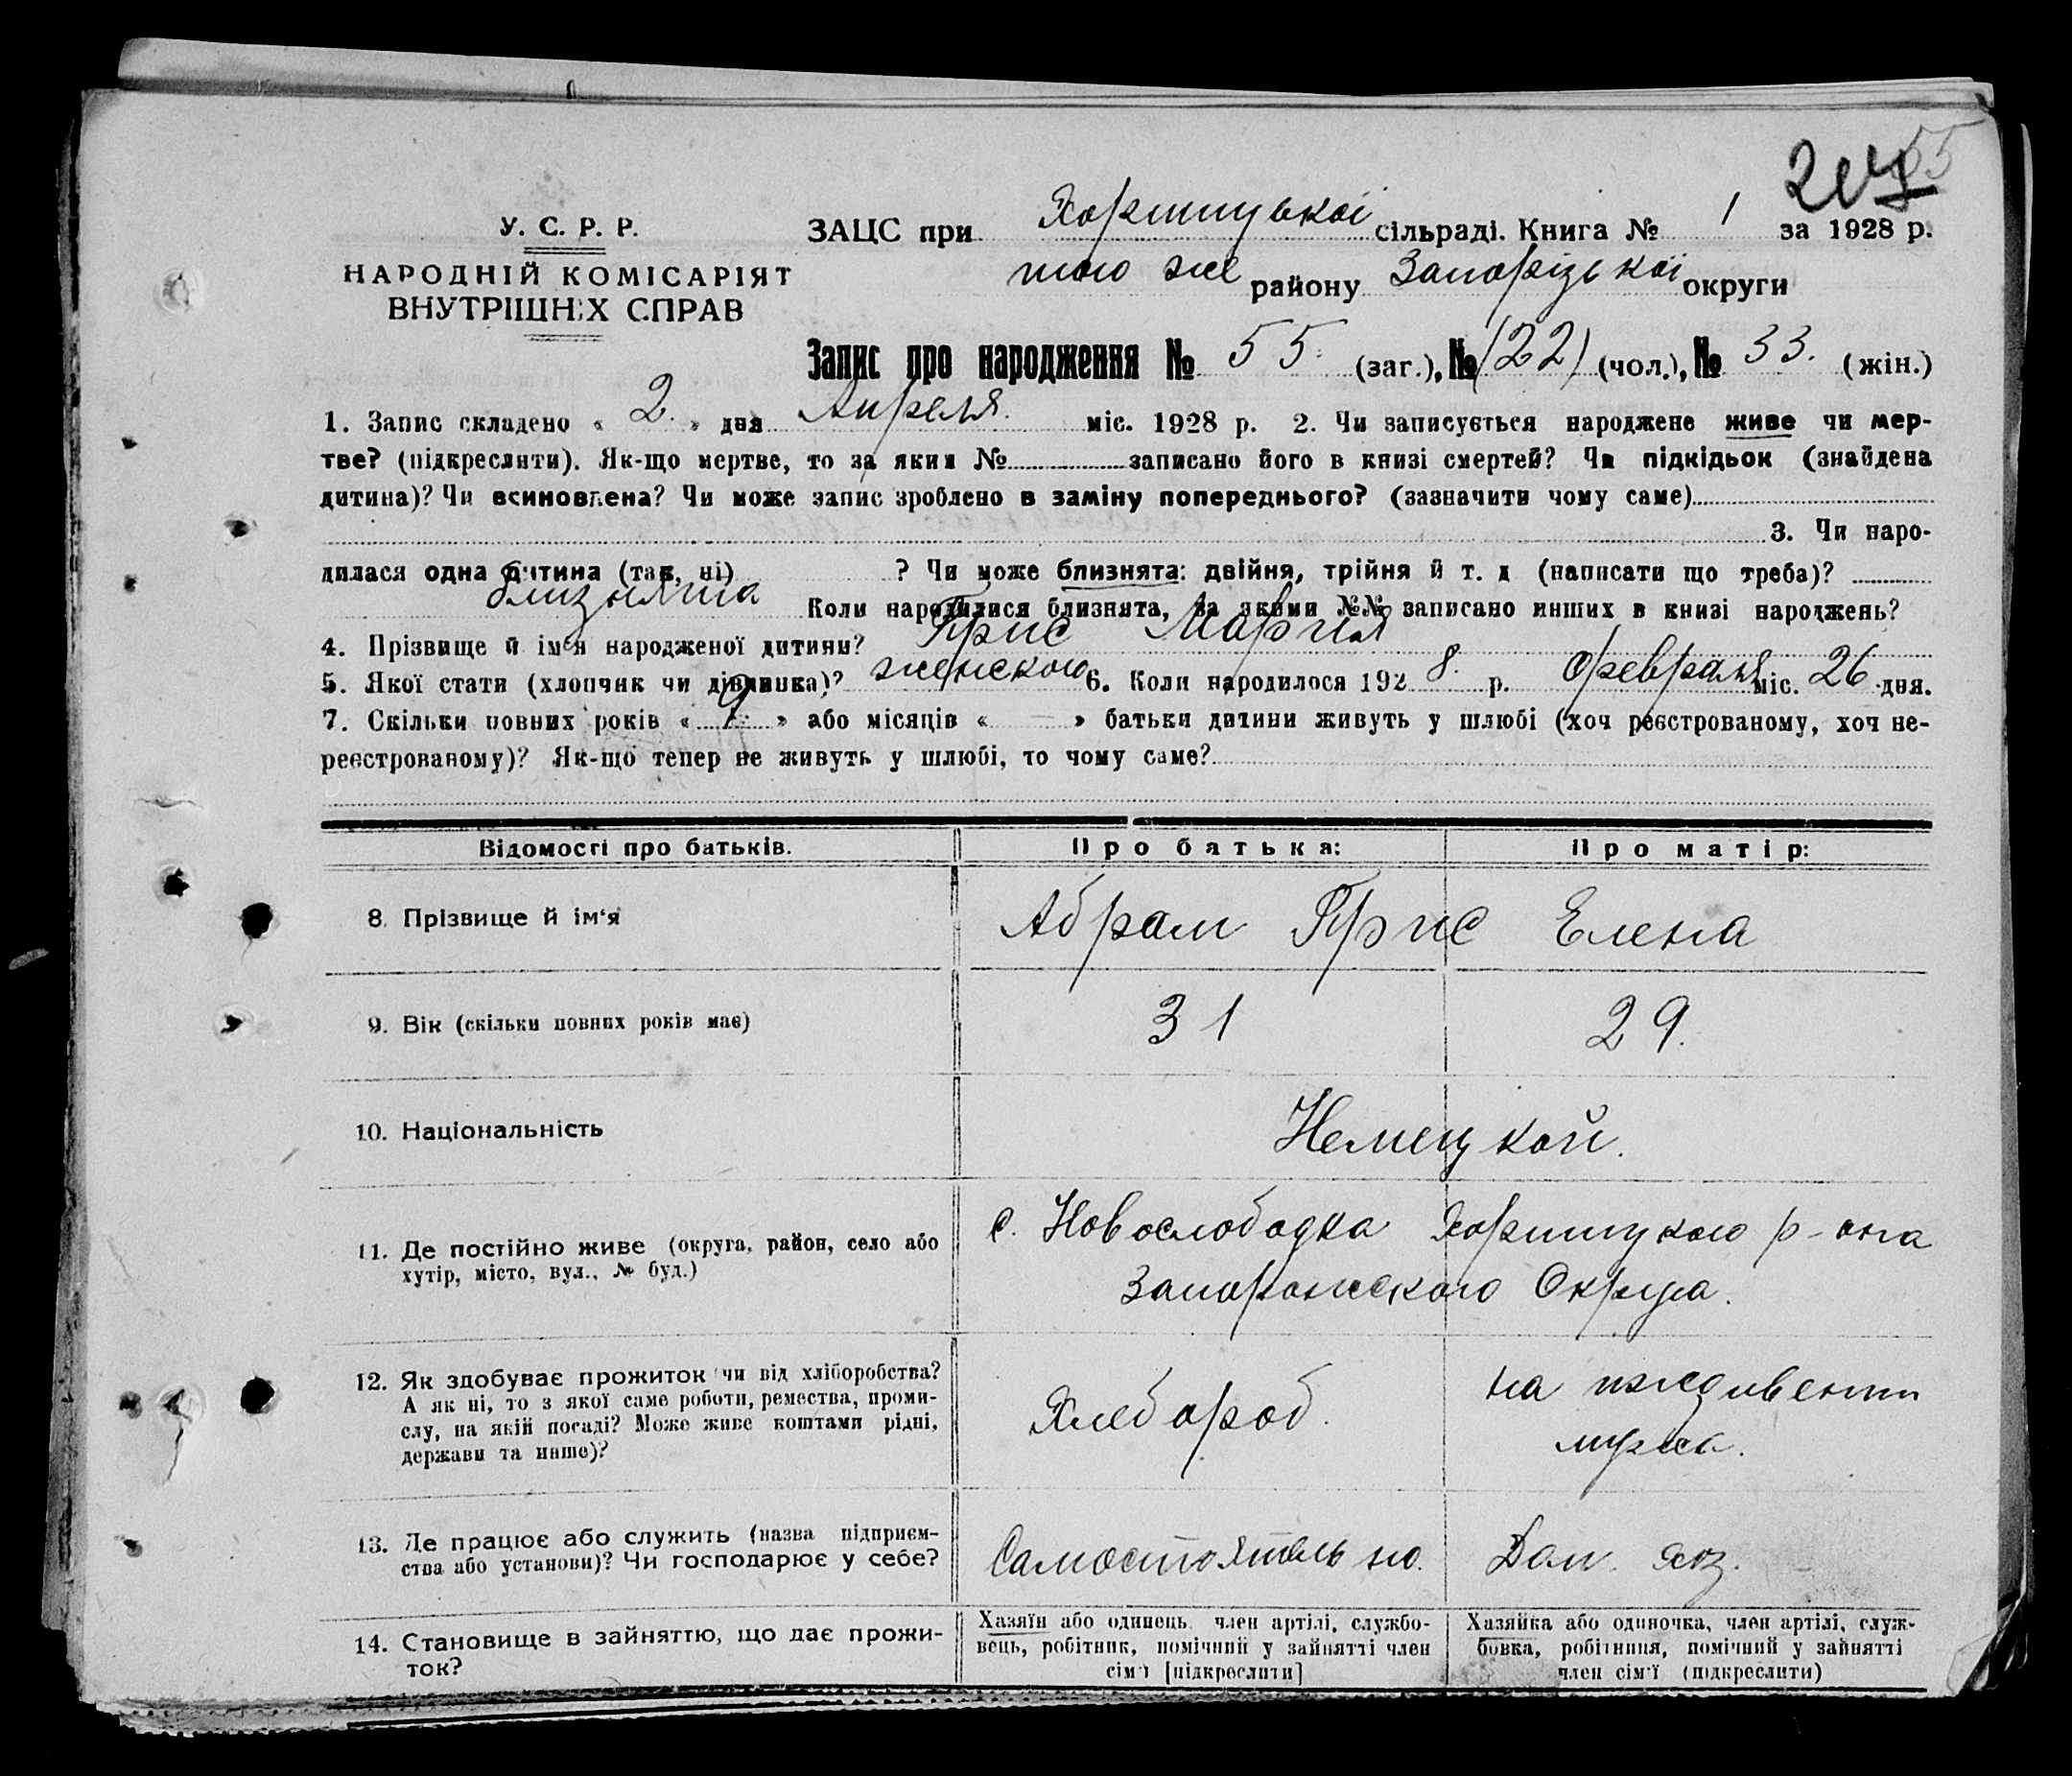 55
У. С. Р. Р.
НАРОДНІЙ КОМІСАРІЯТ
ВНУТРІШНІХ СПРАВ
ЗАЦС при Хортицької сільраді. Книга № 1 за 1928 р.
того же району Запорізької округи
Запис про народження № 55 (заг.), № (22) (чол.), № 33. (жін.)
1. Запис складено « 2. » дня Апреля. міс. 1928 р. 2. Чи записується народжене живе чи мер-
тве? (підкреслити). Як-що мертве, то за яким № записано його в книзі смертей? Чи підкідьок (знайдена
дитина)? Чи всиновлена? Чи може запис зроблено в заміну попереднього? (зазначити чому саме)
3. Чи наро-
дилася одна дитина (так, ні) ? Чи може близнята: двійня, трійня й т. д (написати що треба)?
Коли народилися близнята, за якими №№ записано инших в книзі народжень?
4. Прізвище й ім'я народженої дитини? Прис Мария
5. Якої стати (хлопчик чи дівчинка)? женского 6. Коли народилося 1928. р. Февраля міс. 26 дня.
7. Скільки повних років « 7. » або місяців « — » батьки дитини живуть у шлюбі (хоч реєстрованому, хоч не-
реєстрованому)? Як-що тепер не живуть у шлюбі, то чому саме?
Відомості про батьків. Про батька: Про матір:
8. Прізвище й ім'я Абрам Прис Елена
9. Вік (скільки повних років має) 31 29.
10. Національність Немецкой.
11. Де постійно живе (округа, район, село або с. Новослободка Хортицкого р-она
хутір, місто, вул., № буд.) Запорожского Округа.
12. Як здобуває прожиток чи від хліборобства? на иждивении
А як ні, то з якої саме роботи, ремества, проми- Хлебороб.
слу, на якій посаді? Може живе коштами рідні, мужа.
держави та инше)?
13. Де працює або служить (назва підприєм- Самостоятельно. Дом. хоз.
ства або установи)? Чи господарює у себе?
14. Становище в зайняттю, що дає прожи-
ток?
Хазяїн або одинець, член артілі, службо-
вець, робітник, помічний у зайнятті член
сім'ї [підкреслити]
Хазяйка або одиночка, член артілі, служ-
бовка, робітниця, помічний у зайнятті
член сім'ї (підкреслити)